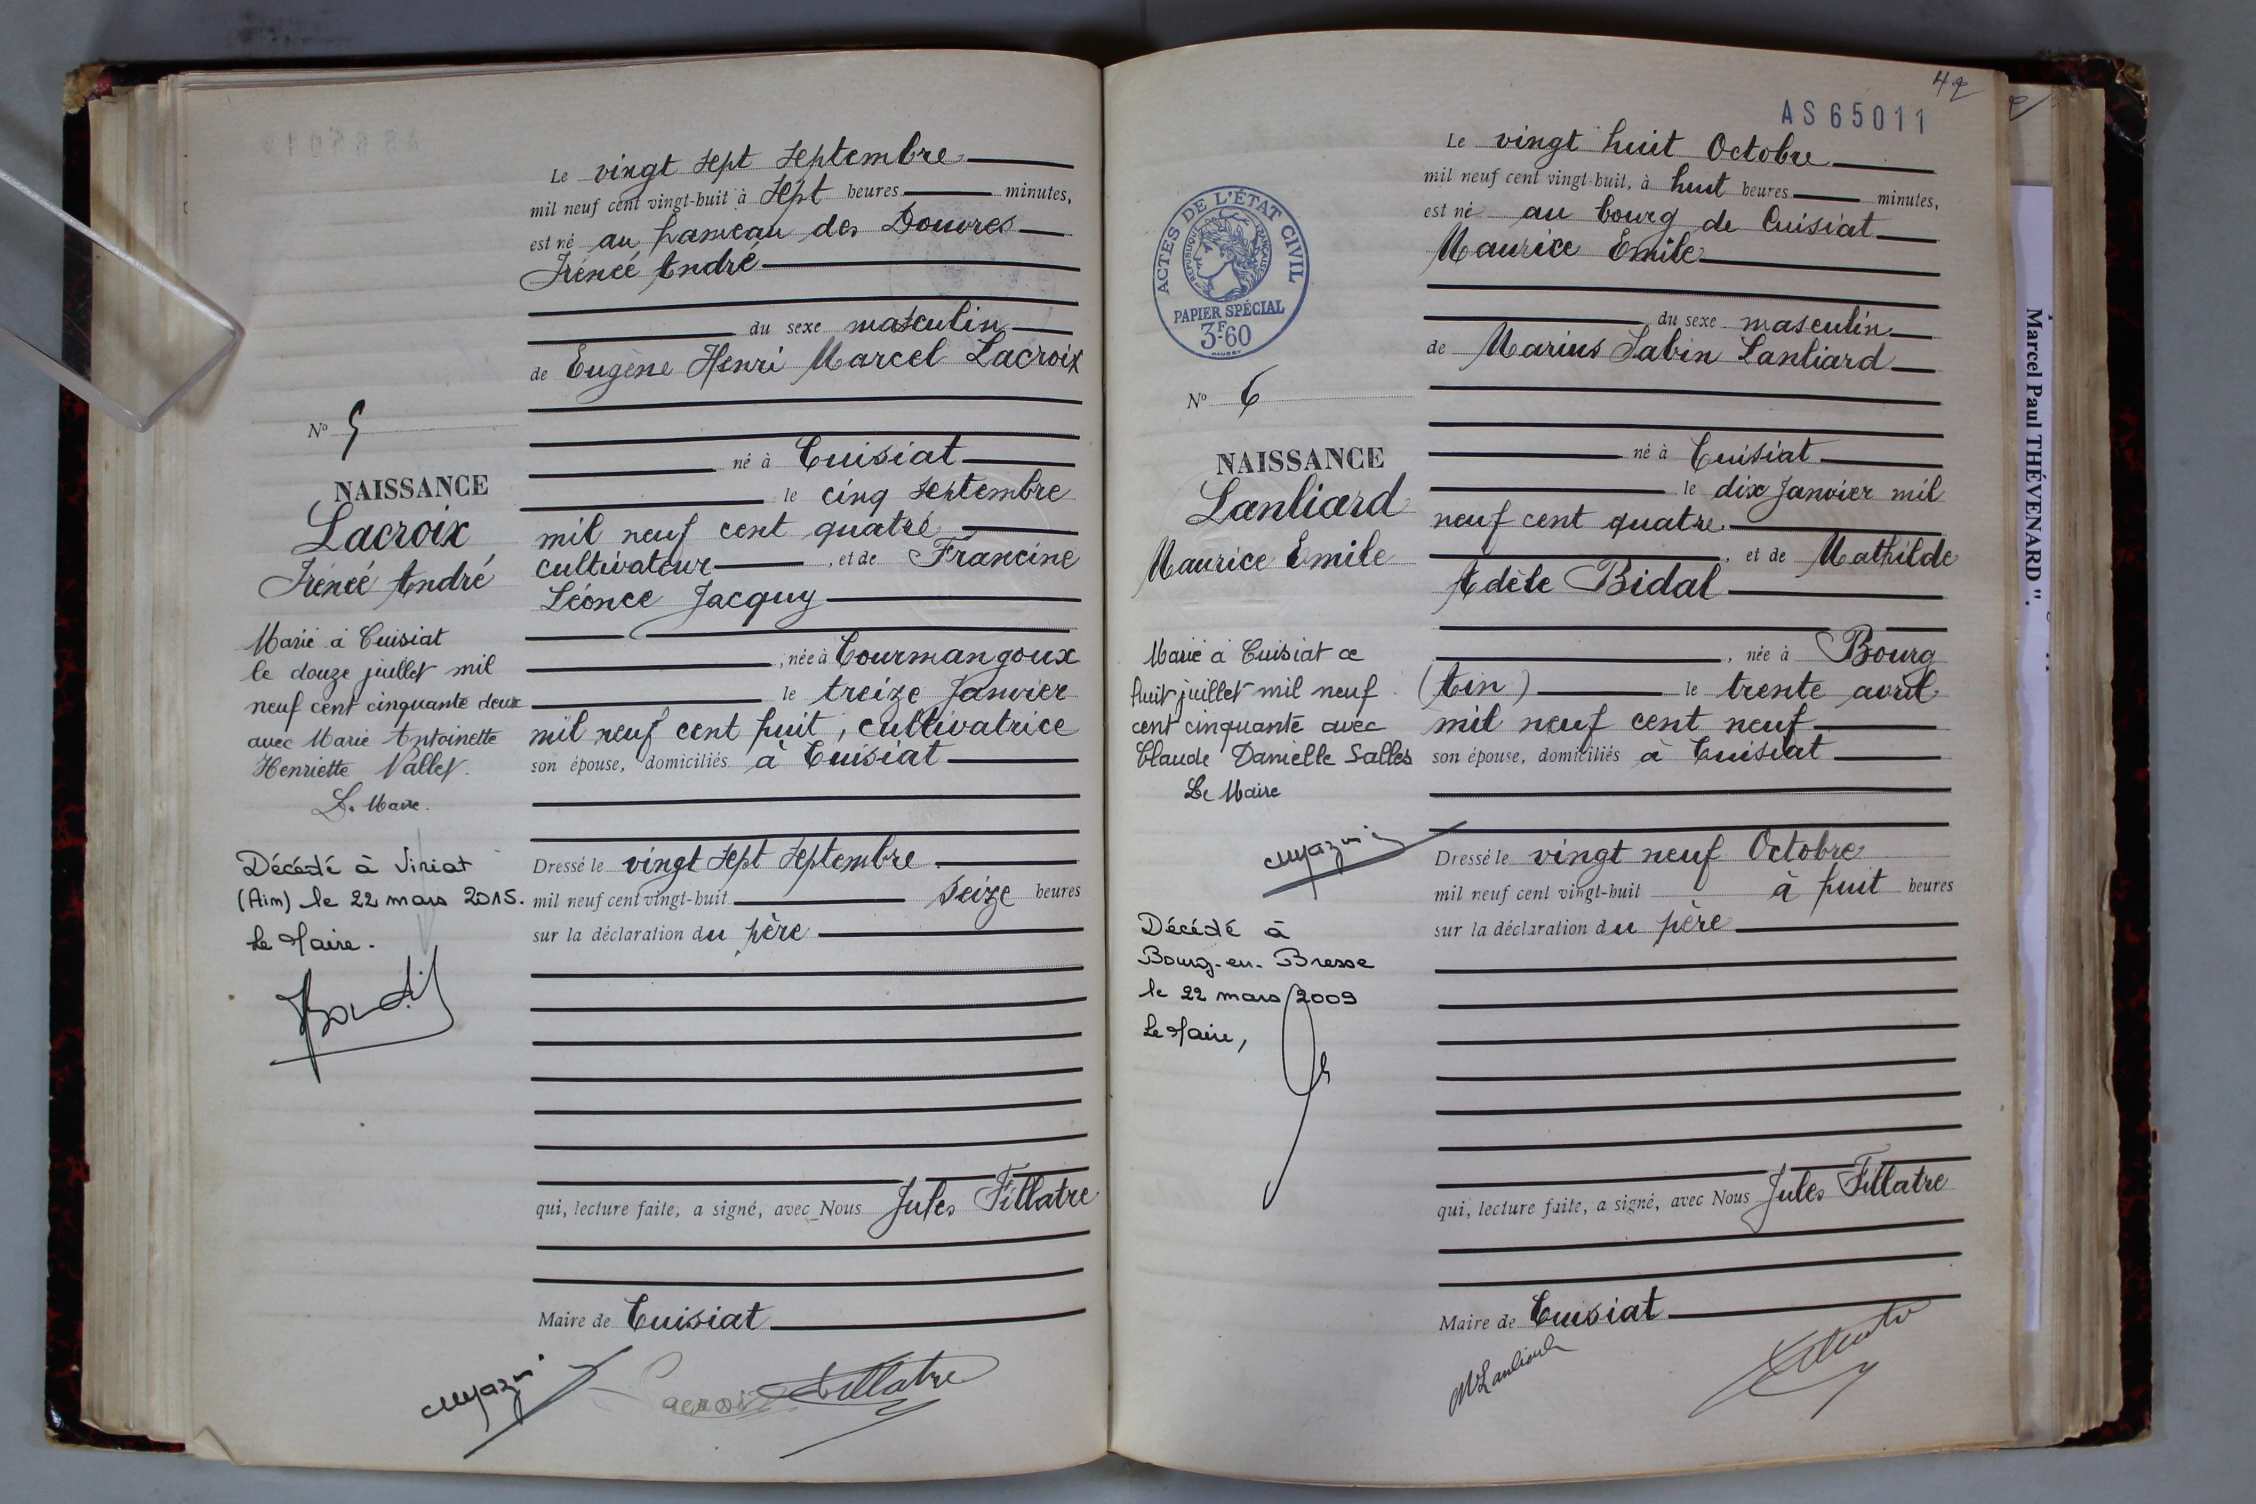 Le vingt sept septembre
mil neuf cent vingt-huit à sept heures minutes,
est né au hameau des Douvres
Irénéé André
du sexe masculin
de Eugène Henri Marcel Lacroix
né à Cuisiat
le cinq septembre
mil neuf cent quatre
cultivateur , et de Francine
Léonce Jacquy
, née à Courmangoux
le treize Janvier
mil neuf cent huit, cultivatrice
son épouse, domiciliés à Cuisiat
Dressé le vingt sept septembre
mil neuf cent vingt-huit seize heures
sur la déclaration du père
qui, lecture faite, a signé, avec Nous Jules Fillatre
Maire de Cuisiat
Lacroix Fillatre
Nº 5
NAISSANCE
Lacroix
Irénéé André
Marié à Cuisiat
le douze juillet mil
neuf cent cinquante deux
avec Marie Antoinette
Henriette Vallet.
Le Maire.
Décédé à Viriat
(Ain) le 22 mars 2015.
Le Maire.
42
AS 65011
Le vingt huit Octobre
mil neuf cent vingt-huit, à huit heures minutes,
est né au bourg de Cuisiat
Maurice Emile
du sexe masculin
de Marius Sabin Lanliard
né à Cuisiat
le dix Janvier mil
neuf cent quatre.
, et de Mathilde
Adèle Bidal
, née à Bourg
(Ain) le trente avril
mil neuf cent neuf
son épouse, domiciliés à Cuisiat
Dressé le vingt neuf Octobre
mil neuf cent vingt-huit à huit heures
sur la déclaration du père
qui, lecture faite, a signé, avec Nous Jules Fillatre
Maire de Cuisiat
M Lanliard
ACTES DE L'ÉTAT CIVIL
RÉPUBLIQUE FRANÇAISE
PAPIER SPÉCIAL
3F.60
Nº 6
NAISSANCE
Lanliard
Maurice Emile
Marié à Cuisiat ce
huit juillet mil neuf
cent cinquante avec
Claude Danielle Salles
Le Maire
Décédé à
Bourg-en-Bresse
le 22 mars 2009
Le Maire,
Marcel Paul THÉVENARD".